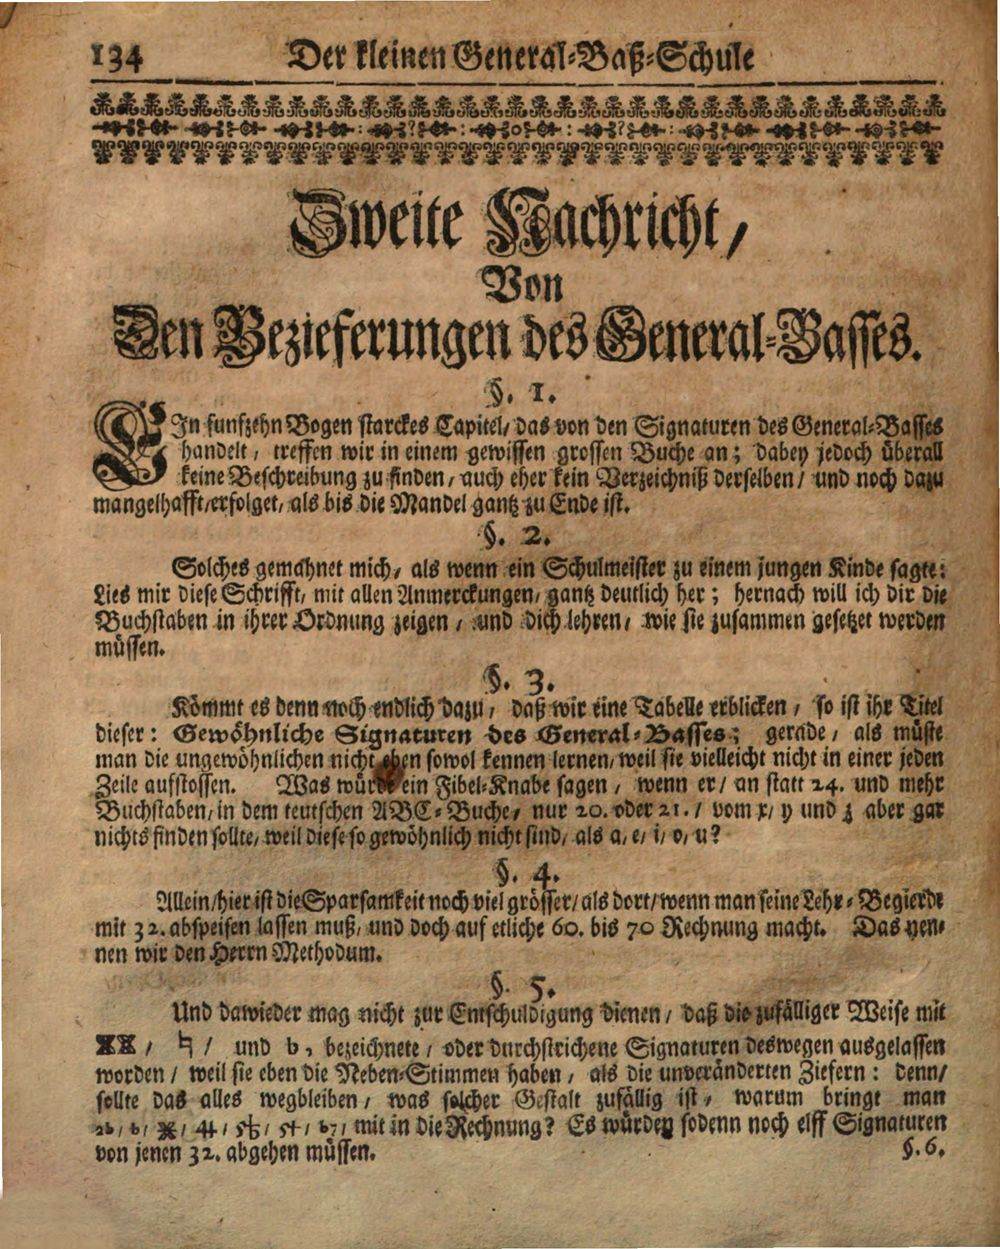 134 Der kleinen General-Baß-Schule
Zweite Nachricht,
Von
Den Bezieferungen des General-Basses.
§. 1.
EIn funfzehn Bogen starckes Capitel, das von den Signaturen des General-Basses
handelt, treffen wir in einem gewissen grossen Buche an; dabey jedoch überall
keine Beschreibung zu finden, auch eher kein Verzeichniß derselben, und noch dazu
mangelhafft, erfolget, als bis die Mandel gantz zu Ende ist.
§. 2.
Solches gemahnet mich, als wenn ein Schulmeister zu einem jungen Kinde sagte:
Lies mir diese Schrifft, mit allen Anmerckungen, gantz deutlich her; hernach will ich dir die
Buchstaben in ihrer Ordnung zeigen, und dich lehren, wie sie zusammen gesetzet werden
müssen.
§. 3.
Kömmt es denn noch endlich dazu, daß wir eine Tabelle erblicken, so ist ihr Titel
dieser: Gewöhnliche Signaturen des General-Basses; gerade, als müste
man die ungewöhnlichen nicht eben sowol kennen lernen, weil sie vielleicht nicht in einer jeden
Zeile aufstossen. Was würde ein Fibel-Knabe sagen, wenn er, an statt 24. und mehr
Buchstaben, in dem teutschen ABC-Buche, nur 20. oder 21., vom x, y und z aber gar
nichts finden sollte, weil diese so gewöhnlich nicht sind, als a, e, i, o, u?
§. 4.
Allein, hier ist die Sparsamkeit noch viel grösser, als dort, wenn man seine Lehr-Begierde
mit 32. abspeisen lassen muß, und doch auf etliche 60. bis 70 Rechnung macht. Das nen-
nen wir den Herrn Methodum.
§. 5.
Und dawieder mag nicht zur Entschuldigung dienen, daß die zufälliger Weise mit
♯♯, ♮, und ♭, bezeichnete, oder durchstrichene Signaturen deswegen ausgelassen
worden, weil sie eben die Neben-Stimmen haben, als die unveränderten Ziefern: denn,
sollte das alles wegbleiben, was solcher Gestalt zufällig ist, warum bringt man
2♭, ♭, ♯, 4♯, 5♭, 5♯, ♭7, mit in die Rechnung? Es würden sodenn noch elff Signaturen
von jenen 32. abgehen müssen. §. 6.